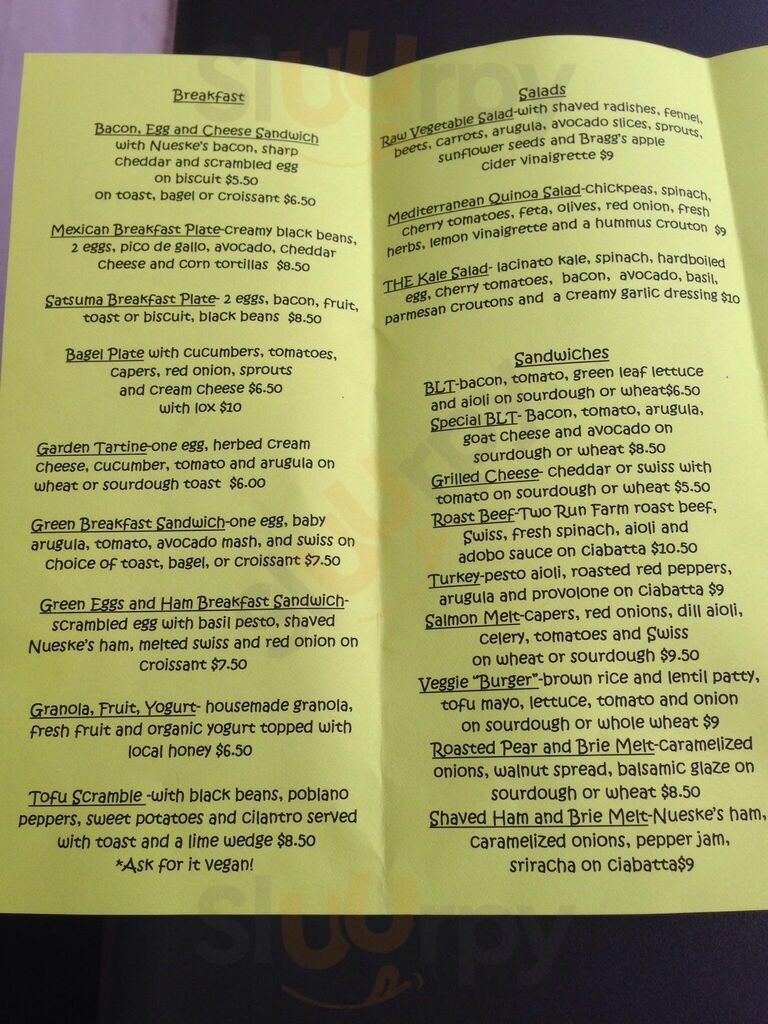 Breakfast
Bacon, Egg and Cheese Sandwich
with Nueske's bacon, sharp
cheddar and scrambled egg
on biscuit $5.50
on toast, bagel or croissant $6.50
Mexican Breakfast Plate-creamy black beans,
2 eggs, pico de gallo, avocado, cheddar
cheese and corn tortillas $8.50
Satsuma Breakfast Plate- 2 eggs, bacon, fruit,
toast or biscuit, black beans $8.50
Bagel Plate with cucumbers, tomatoes,
capers, red onion, sprouts
and cream cheese $6.50
with lox $10
Garden Tartine-one egg, herbed cream
cheese, cucumber, tomato and arugula on
wheat or sourdough toast $6.00
Green Breakfast Sandwich-one egg, baby
arugula, tomato, avocado mash, and swiss on
choice of toast, bagel, or croissant $7.50
Green Eggs and Ham Breakfast Sandwich-
scrambled egg with basil pesto, shaved
Nueske's ham, melted swiss and red onion on
croissant $7.50
Granola, Fruit, Yogurt- housemade granola,
fresh fruit and organic yogurt topped with
local honey $6.50
Tofu Scramble -with black beans, poblano
peppers, sweet potatoes and cilantro served
with toast and a lime wedge $8.50
*Ask for it vegan!
Salads
Raw Vegetable Salad-with shaved radishes, fennel,
beets, carrots, arugula, avocado slices, sprouts,
sunflower seeds and Bragg's apple
cider vinaigrette $9
Mediterranean Quinoa Salad-chickpeas, spinach,
cherry tomatoes, feta, olives, red onion, fresh
herbs, lemon vinaigrette and a hummus crouton $9
THE Kale Salad- lacinato kale, spinach, hardboiled
egg, cherry tomatoes, bacon, avocado, basil,
parmesan croutons and a creamy garlic dressing $10
Sandwiches
BLT-bacon, tomato, green leaf lettuce
and aioli on sourdough or wheat$6.50
Special BLT- Bacon, tomato, arugula,
goat cheese and avocado on
sourdough or wheat $8.50
Grilled Cheese- cheddar or swiss with
tomato on sourdough or wheat $5.50
Roast Beef-Two Run Farm roast beef,
Swiss, fresh spinach, aioli and
adobo sauce on ciabatta $10.50
Turkey-pesto aioli, roasted red peppers,
arugula and provolone on ciabatta $9
Salmon Melt-capers, red onions, dill aioli,
celery, tomatoes and Swiss
on wheat or sourdough $9.50
Veggie "Burger"-brown rice and lentil patty,
tofu mayo, lettuce, tomato and onion
on sourdough or whole wheat $9
Roasted Pear and Brie Melt-caramelized
onions, walnut spread, balsamic glaze on
sourdough or wheat $8.50
Shaved Ham and Brie Melt-Nueske's ham,
caramelized onions, pepper jam,
sriracha on ciabatta$9
Sluurpy
Sluurpy
Sluurpy